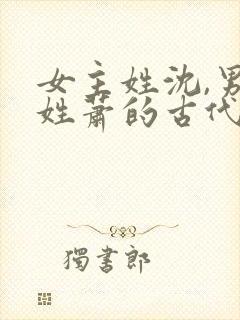 女主姓沈,男
姓萧的古代
獨書郎